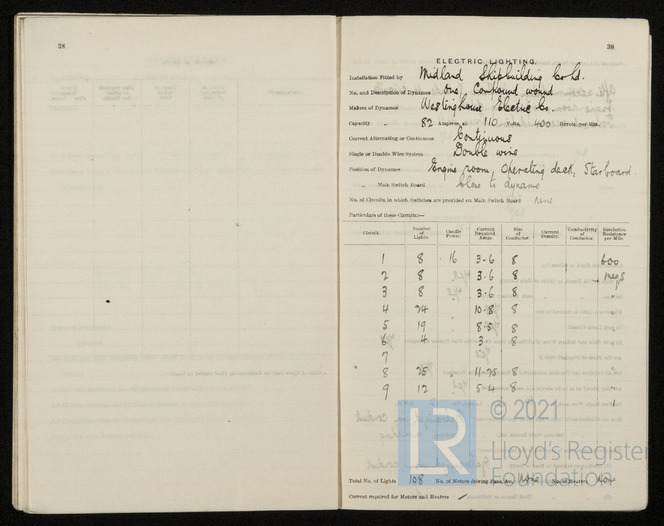 38
38
ELECTRIC LIGHTING.
Installation Fitted by Midland Shipbuilding Co Ld.
No. and Description of Dynamos One, Compound wound
Makers of Dynamos Westinghouse Electric Co.
Capacity " 82 Amperes, at 110 Volts, 400 Revols. per Min.
Current Alternating or Continuous Continuous
Single or Double Wire System Double wire
Position of Dynamos Engine room, Operating deck, Starboard.
" Main Switch Board Close to dynamo
No. of Circuits to which Switches are provided on Main Switch Board nine
Particulars of these Circuits:—
Circuit. Number of Lights. Candle Power. Current Required. Amps. Size of Conductor. Current Density. Conductivity of Conductor. Insulation Resistance per Mile.
1 8 16 3.6 8 600
2 8 " 3.6 8 megs
3 8 " 3.6 8 "
4 24 " 10.8 8 "
5 19 8.5 8 "
6 4 " 3. 8
7
8 25 " 11.25 8 "
9 12 " 5.4 8 "
LR © 2021
Lloyd's Register
Foundation
Total No. of Lights 108 No. of Motors driving Fans, &c. none No. of Heaters non
Current required for Motors and Heaters